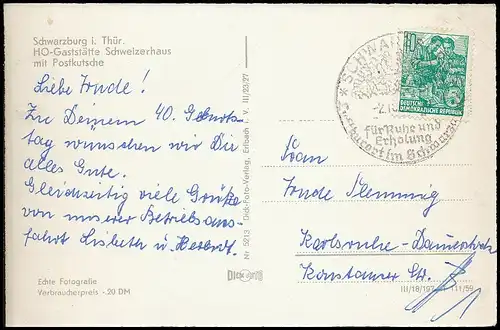 Schwarzburg i. Thür.
HO-Gaststätte Schweizerhaus
mit Postkutsche
Liebe Frude!
Zu Deinem 40. Geburts-
tag wünschen wir Dir
alles Gute.
Gleichzeitig viele Grüße
von unserer Betriebsaus-
fahrt Lisbeth u. Herbert.
Echte Fotografie
Verbraucherpreis -.20 DM
Nr. 5213 Dick-Foto-Verlag, Erlbach i. V. III/23/27
DICK
10
DEUTSCHE
DEMOKRATISCHE REPUBLIK
für Ruhe und
Erholung
Frau
Karlsruhe-
Konstanzer Str.
III/18/197 111/59